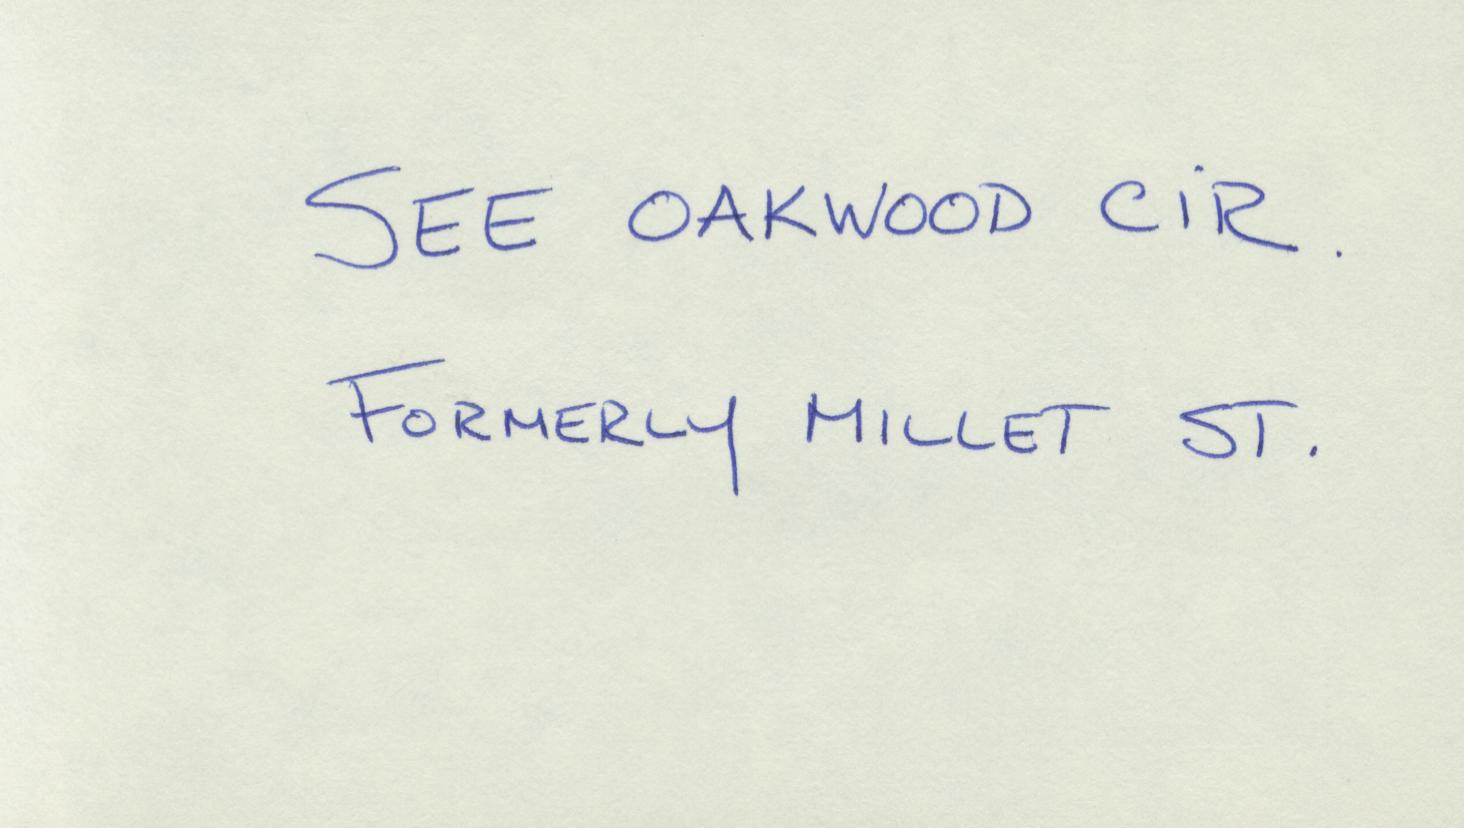 SEE OAKWOOD CIR.
FORMERLY MILLET ST.